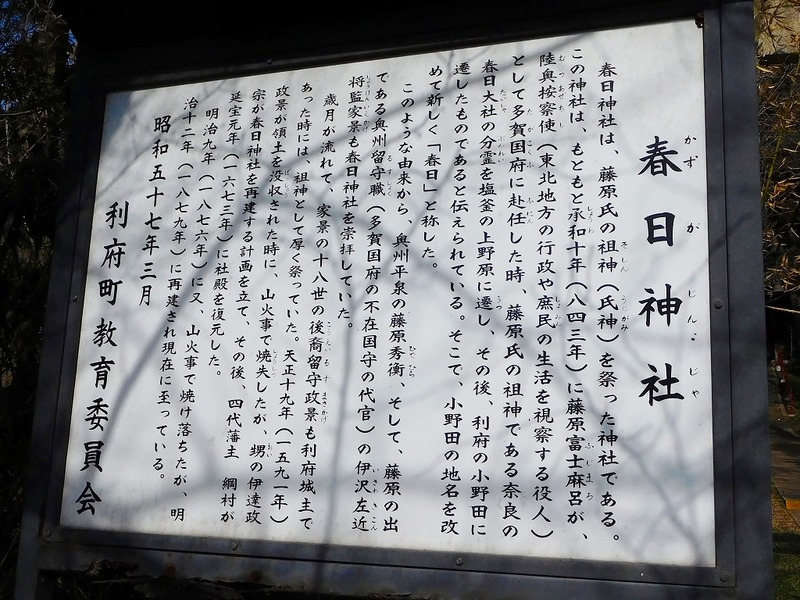 春日神社
春日神社は、藤原氏の祖神（氏神）を祭った神社である。
この神社は、もともと承和十年（八四三年）に藤原富士麻呂が、
陸奥按察使（東北地方の行政や庶民の生活を視察する役人）
として多賀国府に赴任した時、藤原氏の祖神である奈良の
春日大社の分霊を塩釜の上野原に遷し、その後、利府の小野田に
遷したものであると伝えられている。そこで、小野田の地名を改
めて新しく「春日」と称した。
このような由来から、奥州平泉の藤原秀衡、そして、藤原の出
である奥州留守職（多賀国府の不在国守の代官）の伊沢左近
将監家景も春日神社を崇拝していた。
歳月が流れて、家景の十八世の後裔留守政景も利府城主で
あった時には、祖神として厚く祭っていた。天正十九年（一五九一年）
政景が領土を没収された時に、山火事で焼失したが、甥の伊達政
宗が春日神社を再建する計画を立て、その後、四代藩主　綱村が
延宝元年（一六七三年）に社殿を復元した。
明治九年（一八七六年）に又、山火事で焼け落ちたが、明
治十二年（一八七九年）に再建され現在に至っている。
昭和五十七年三月
利府町教育委員会